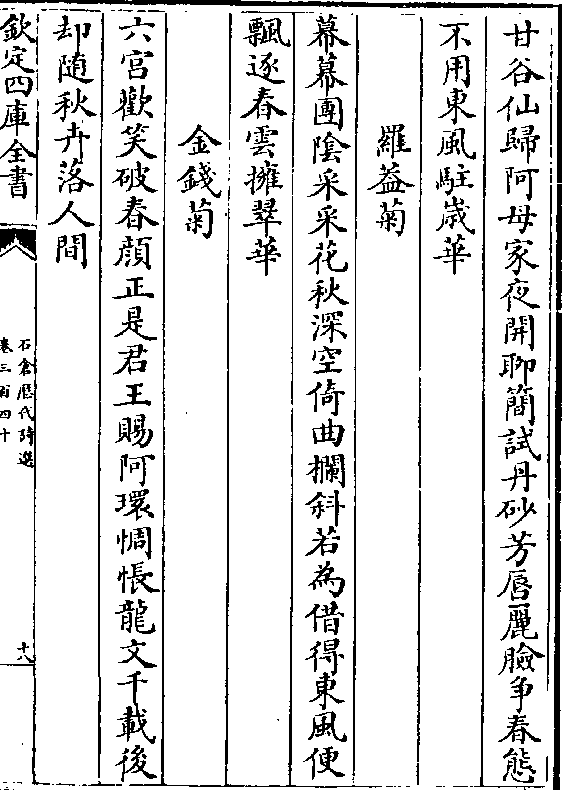 甘谷仙歸阿母家夜開聊簡試丹砂芳唇麗臉争春態
不用東風駐歳華
羅盖菊
幕幕團隂采采花秋深空倚曲欄斜若為借得東風便
飄逐春雲擁翠華
金錢菊
六宮歡笑破春顔正是君王賜阿環惆悵龍文千載後
却隨秋卉落人間
欽定四庫全書
石倉歴代詩選
卷三百四十
十八